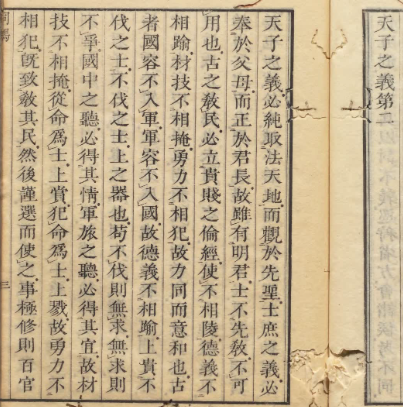 天子之義第二
天子之義必純取法天地而觀於先聖士庶之義必
奉於父母而正於君長故雖有明君士不先教不可
用也古之教民必立貴賤之倫經使不相陵德義不
相踰材技不相掩勇力不相犯故力同而意和也古
者國容不入軍軍容不入國故德義不相踰上貴不
伐之士不伐之士上之器也苟不伐則無求無求則
不爭國中之聽必得其情軍旅之聽必得其宜故材
技不相掩從命為士上賞犯命為士上戮故勇力不
相犯旣致教其民然後謹選而使之事極修則百官
三